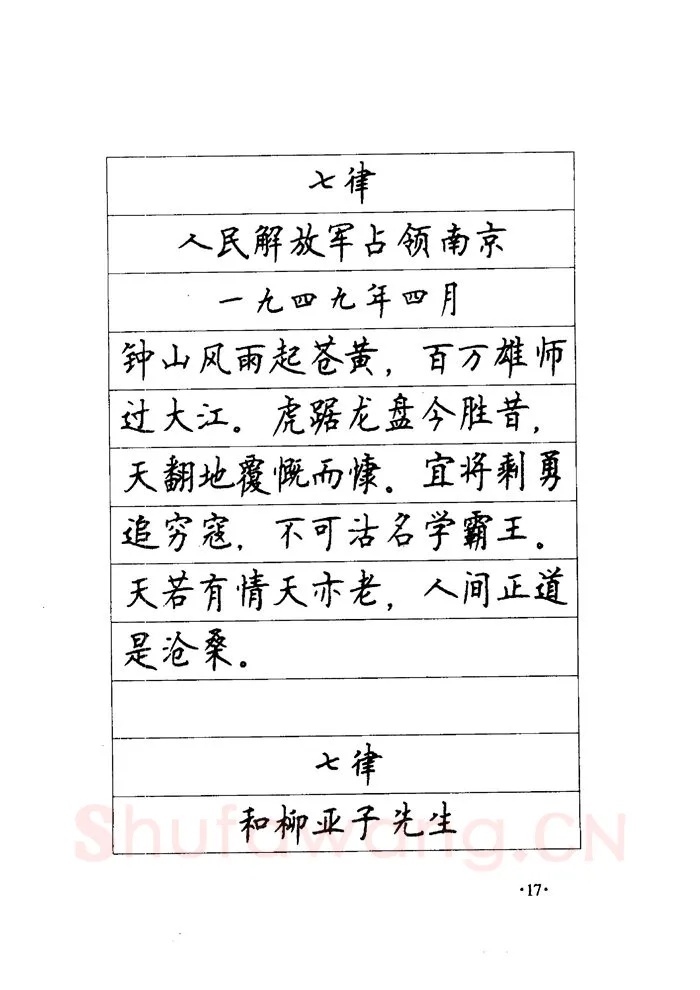 七律
人民解放军占领南京
一九四九年四月
钟山风雨起苍黄，百万雄师
过大江。虎踞龙盘今胜昔，
天翻地覆慨而慷。宜将剩勇
追穷寇，不可沽名学霸王。
天若有情天亦老，人间正道
是沧桑。
七律
和柳亚子先生
Shufawang.CN
·17·